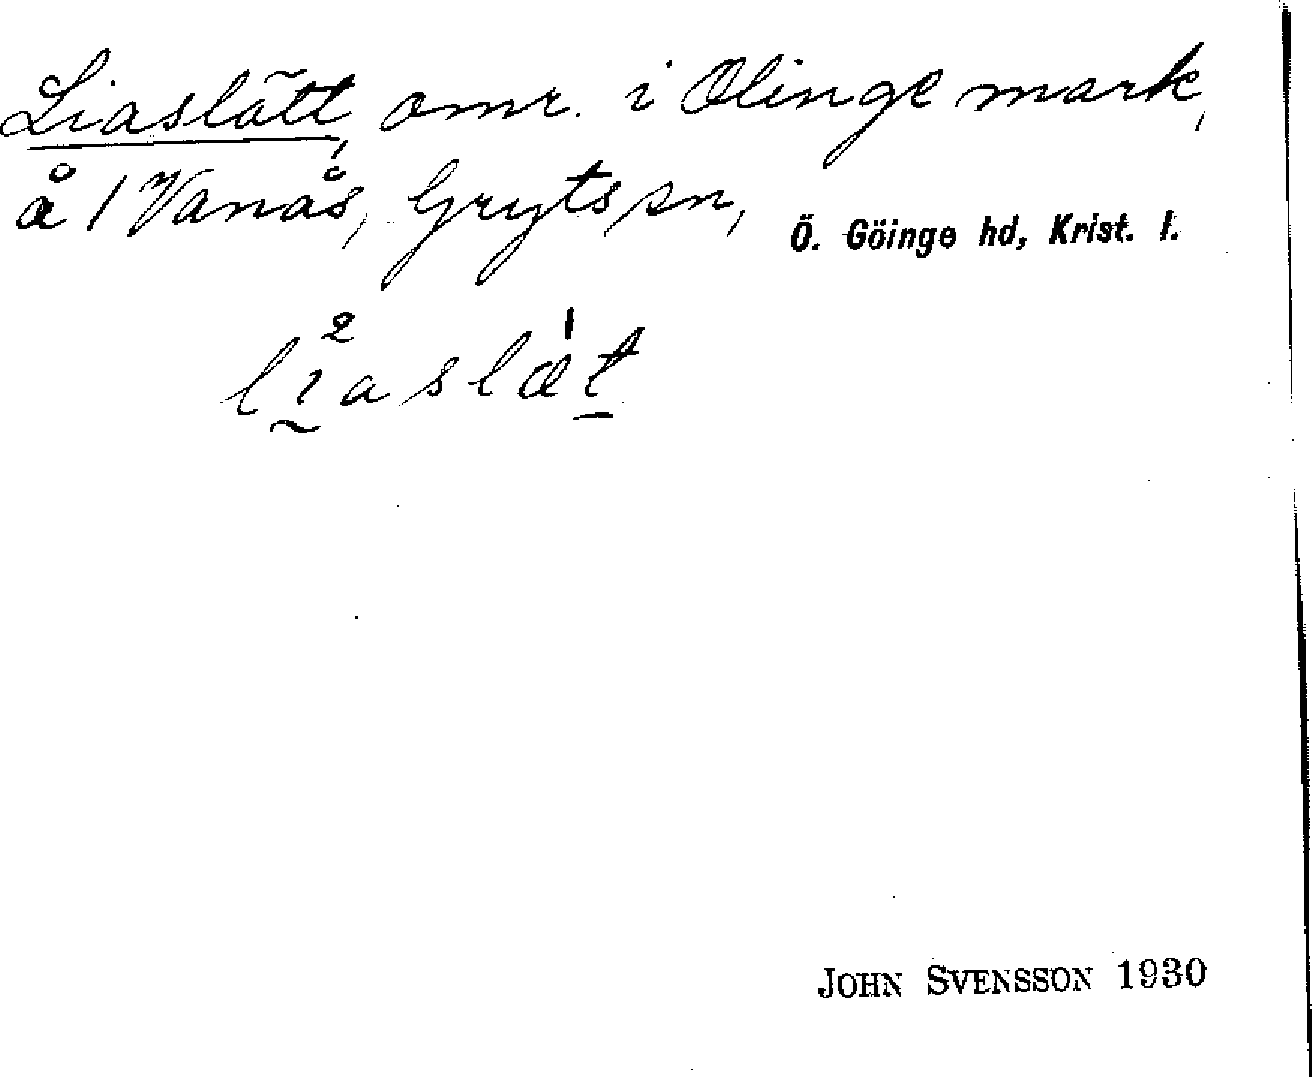 Liaslätt, omr. i Olinge mark,
å 1 Vanås, Gryts sn, Ö. Göinge hd, Krist. l.
li²aslæ̍t
JOHN SVENSSON 1930